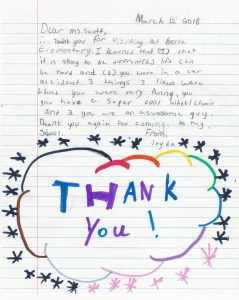 March 12, 2018
Dear ms. Scott,
Thank you for visiting at
Elementary. I learned that (1) that
it is okay to be different (2) life can
be hard and (3) you were in a car
accident 3 things I likes were
that you were very funny, you
you have a super cool wheelchair
and 3 you are an guy.
Thank you again for coming to my
School. From,
Jayda
THANK
You!